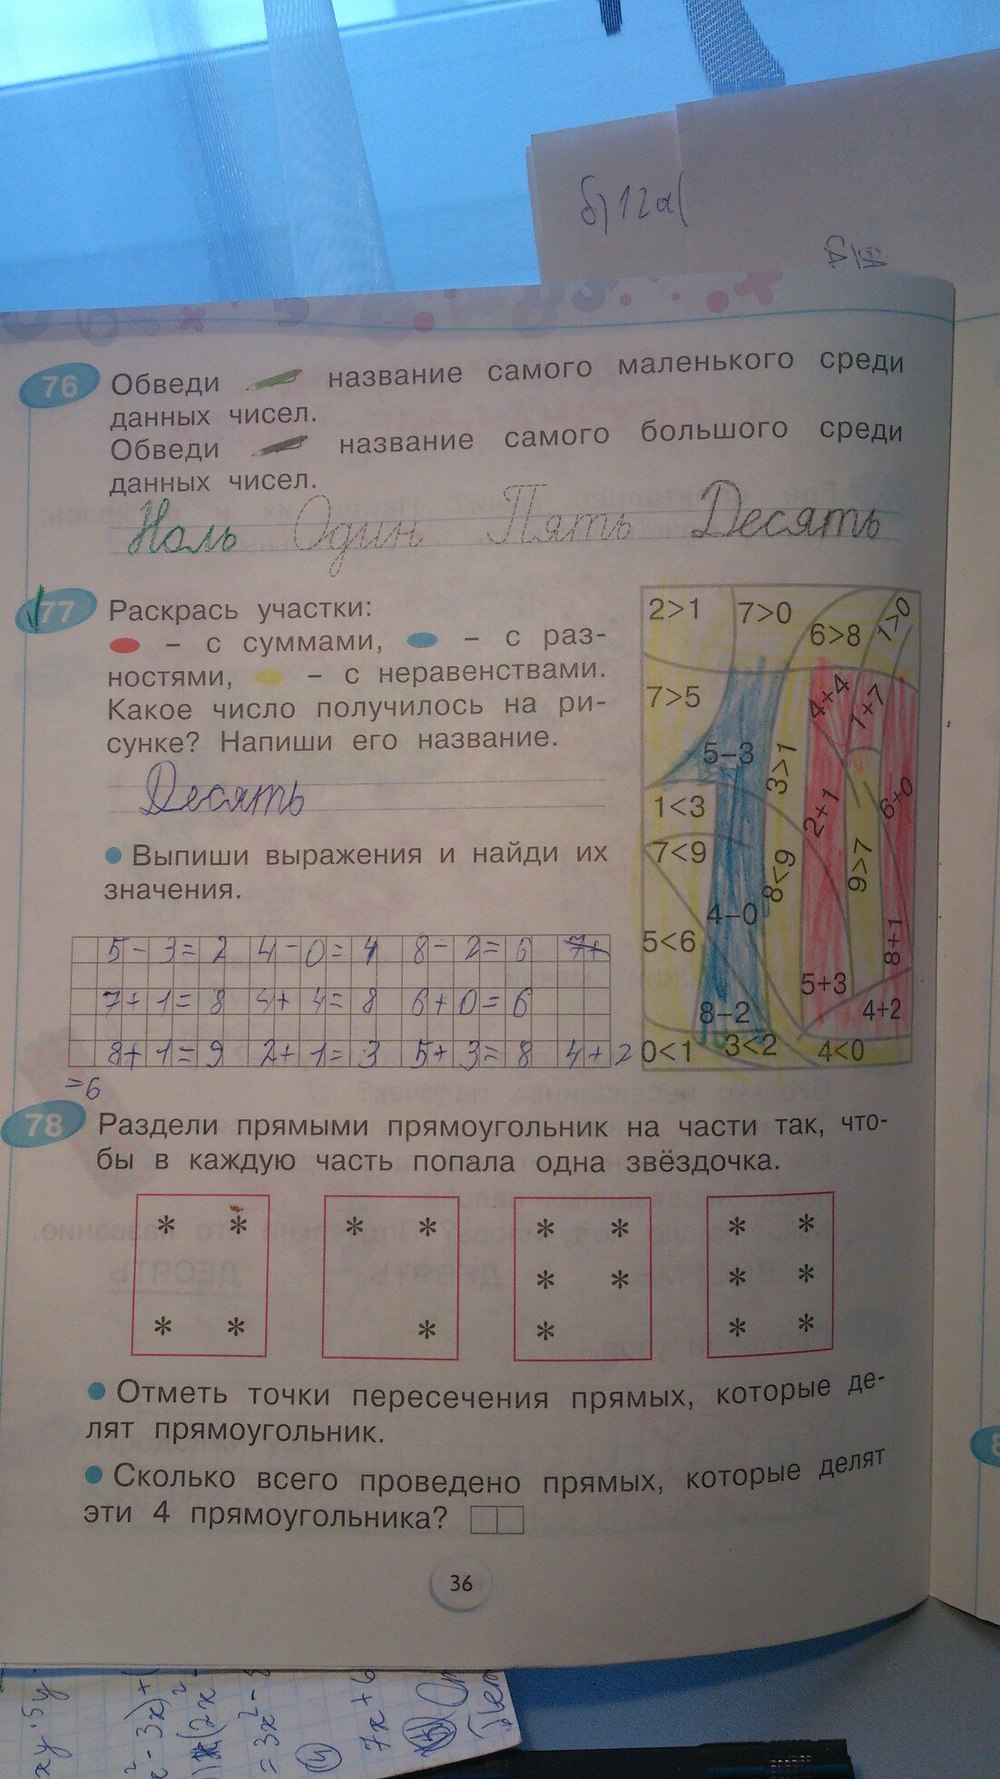 б) 12а(
76 Обведи название самого маленького среди
данных чисел.
Обведи название самого большого среди
данных чисел.
Ноль Один Пять Десять
77 Раскрась участки:
– с суммами, – с раз-
ностями, – с неравенствами.
Какое число получилось на ри-
сунке? Напиши его название.
Десять
• Выпиши выражения и найди их
значения.
5-3=2 4-0=4 8-2=6 7+
7+1=8 4+4=8 6+0=6
8+1=9 2+1=3 5+3=8 4+2
=6
2>1 7>0 6>8 1>0
7>5 4+4 1+7
5–3 3>1
1<3 2+1 6+0
7<9 8<9 9>7
4–0
5<6 8+1
5+3
8–2 4+2
0<1 3<2 4<0
78 Раздели прямыми прямоугольник на части так, что-
бы в каждую часть попала одна звёздочка.
* * * * * * * *
* * * *
* * * * * *
• Отметь точки пересечения прямых, которые де-
лят прямоугольник.
• Сколько всего проведено прямых, которые делят
эти 4 прямоугольника?
36
= 3x²-
7x+6